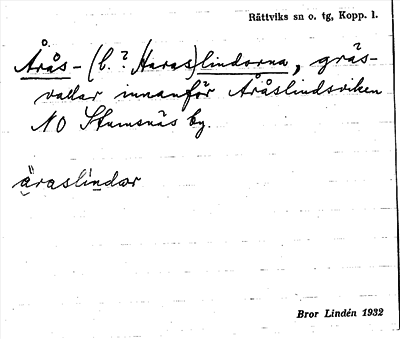 Rättviks sn o. tg, Kopp. l.
Årås-(l.? Haras)lindorna, gräs-
vallar innanför Åråslindsviken
NO Stumsnäs by.
äraslindar
Bror Lindén 1932